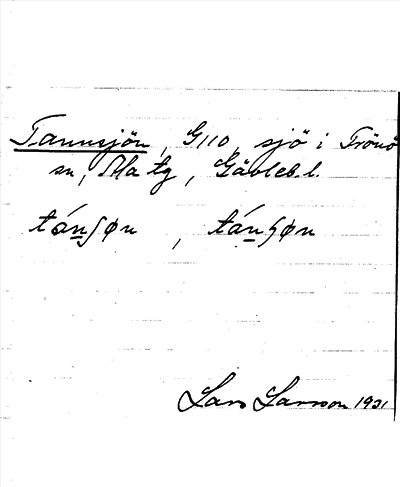 Tannsjön, G110, sjö i Trönö
sn, Ala tg, Gävleb.l.
tánʃøn, tánʃøn
Lars Larsson 1931